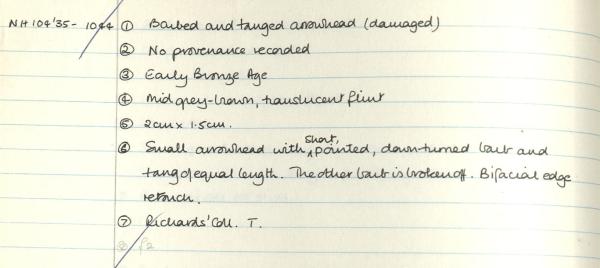 NH 104'35 - 1044 ① Barbed and tanged arrowhead (damaged)
② No provenance recorded
③ Early Bronze Age
④ Mid grey-brown, translucent flint
⑤ 2cm x 1.5cm.
⑥ Small arrowhead with short, pointed, down-turned barb and
tang of equal length. The other barb is broken off. Bifacial edge
retouch.
⑦ Richards' Coll. T.
⑧ £2